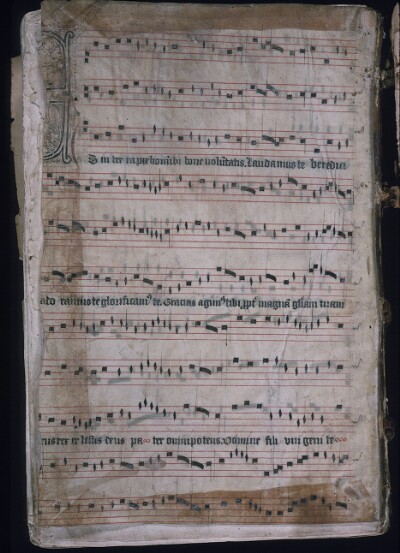 in ter ra pax hominibus bone voluntatis. Laudamus te benedici
ado ramus te glorificamus te. Gracias agimus tibi ppt magnā gliam tuam
mus rex celestis deus pa ter omnipotens. Domine fili uni geni te